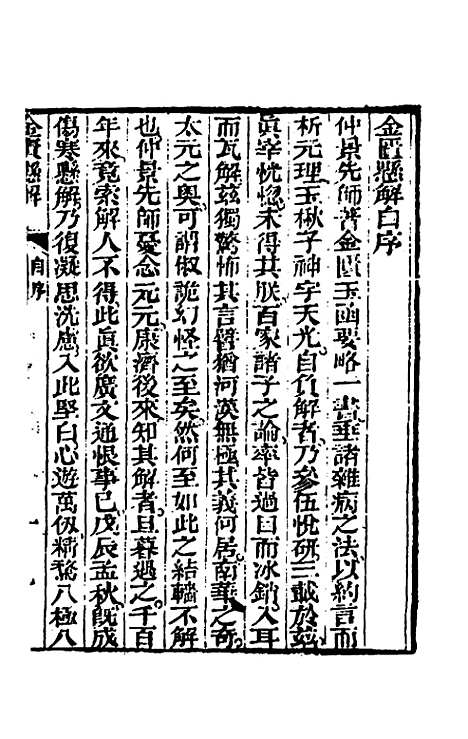 金匱懸解自序
仲景先師著金匱玉函要略一書垂諸雜病之法以約言而
析元理玉楸子神宇天光自負解者乃參伍悅研三載於茲
眞宰恍惚未得其朕百家諸子之論率皆過目而冰銷入耳
而瓦解茲獨驚怖其言譬猶河漢無極其義何居南華之奇
太元之奧可謂俶詭幻怪之至矣然何至如此之結轖不解
也仲景先師憂念元元康濟後來知其解者旦暮遇之千百
年來竟索解人不得此眞欲廣文通恨事已戊辰孟秋旣成
傷寒懸解乃復凝思洗慮入此堅白心遊萬仞精騖八極八
金匱懸解 自序